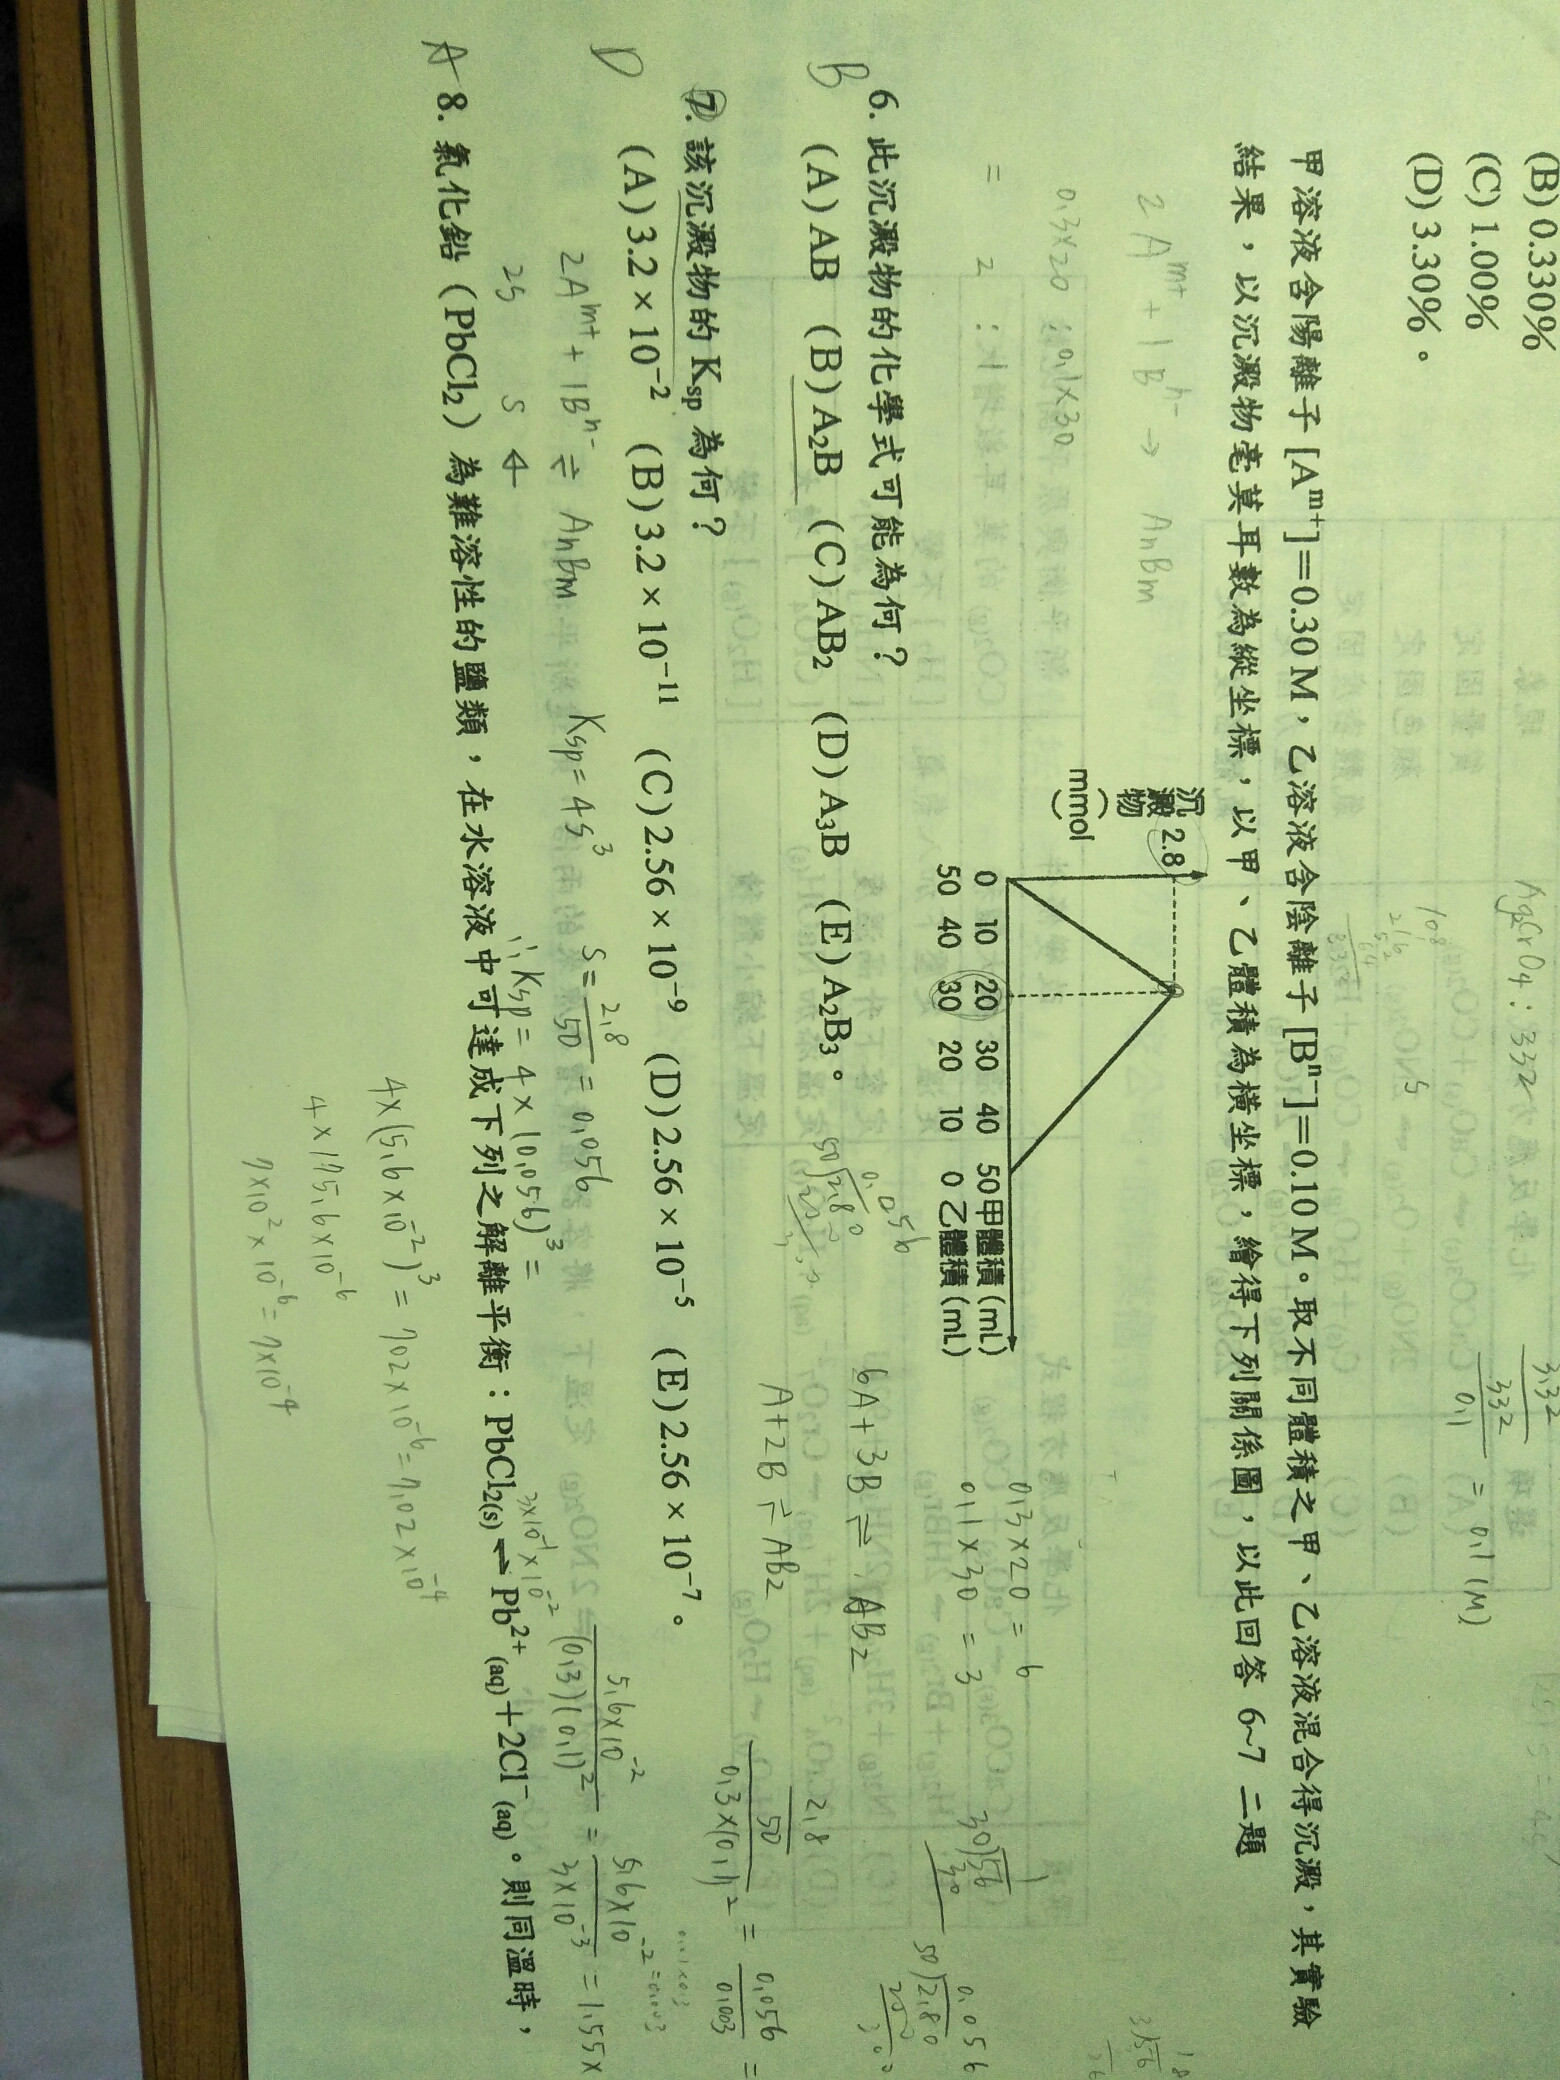 (B) 0.330%
(C) 1.00%
(D) 3.30%。
AgCrO4 : 332
3.32
332
0.1
= 0.1 (M)
甲溶液含陽離子 [Aᵐ⁺]=0.30 M，乙溶液含陰離子 [Bⁿ⁻]=0.10 M。取不同體積之甲、乙溶液混合得沉澱，其實驗
結果，以沉澱物毫莫耳數為縱坐標，以甲、乙體積為橫坐標，繪得下列關係圖，以此回答 6~7 二題
2Aᵐ⁺ + 1Bⁿ⁻ → AnBm
0.3×20 : 0.1×30
= 2 : 1
沉澱物
(mmol)
2.8
0 10 20 30 40 50 甲體積(mL)
50 40 30 20 10 0 乙體積(mL)
0.3×20 = 6
0.1×30 = 3
6A+3B ⇌ AB2
A+2B ⇌ AB2
B
6. 此沉澱物的化學式可能為何？
(A) AB (B) A₂B (C) AB₂ (D) A₃B (E) A₂B₃。
0.056
50)2.80
D
7. 該沉澱物的 Ksp 為何？
(A) 3.2 × 10⁻² (B) 3.2 × 10⁻¹¹ (C) 2.56 × 10⁻⁹ (D) 2.56 × 10⁻⁵ (E) 2.56 × 10⁻⁷。
2Aᵐ⁺ + 1Bⁿ⁻ ⇌ AnBm
2s s
Ksp = 4s³
s = 2.8/50 = 0.056
∴ Ksp = 4 × (0.056)³ =
4×(5.6×10⁻²)³ = 702×10⁻⁶ = 7.02×10⁻⁴
4×175.6×10⁻⁶
7×10²×10⁻⁶ = 7×10⁻⁴
2.8
50
0.3×(0.1)² = 0.056/0.003 =
5.6×10⁻²
(0.3)(0.1)² = 5.6×10⁻²/3×10⁻³ = 1.55×
3×10⁻¹×10⁻²
A
8. 氯化鉛（PbCl₂）為難溶性的鹽類，在水溶液中可達成下列之解離平衡：PbCl₂(s) ⇌ Pb²⁺(aq)＋2Cl⁻(aq)。則同溫時，